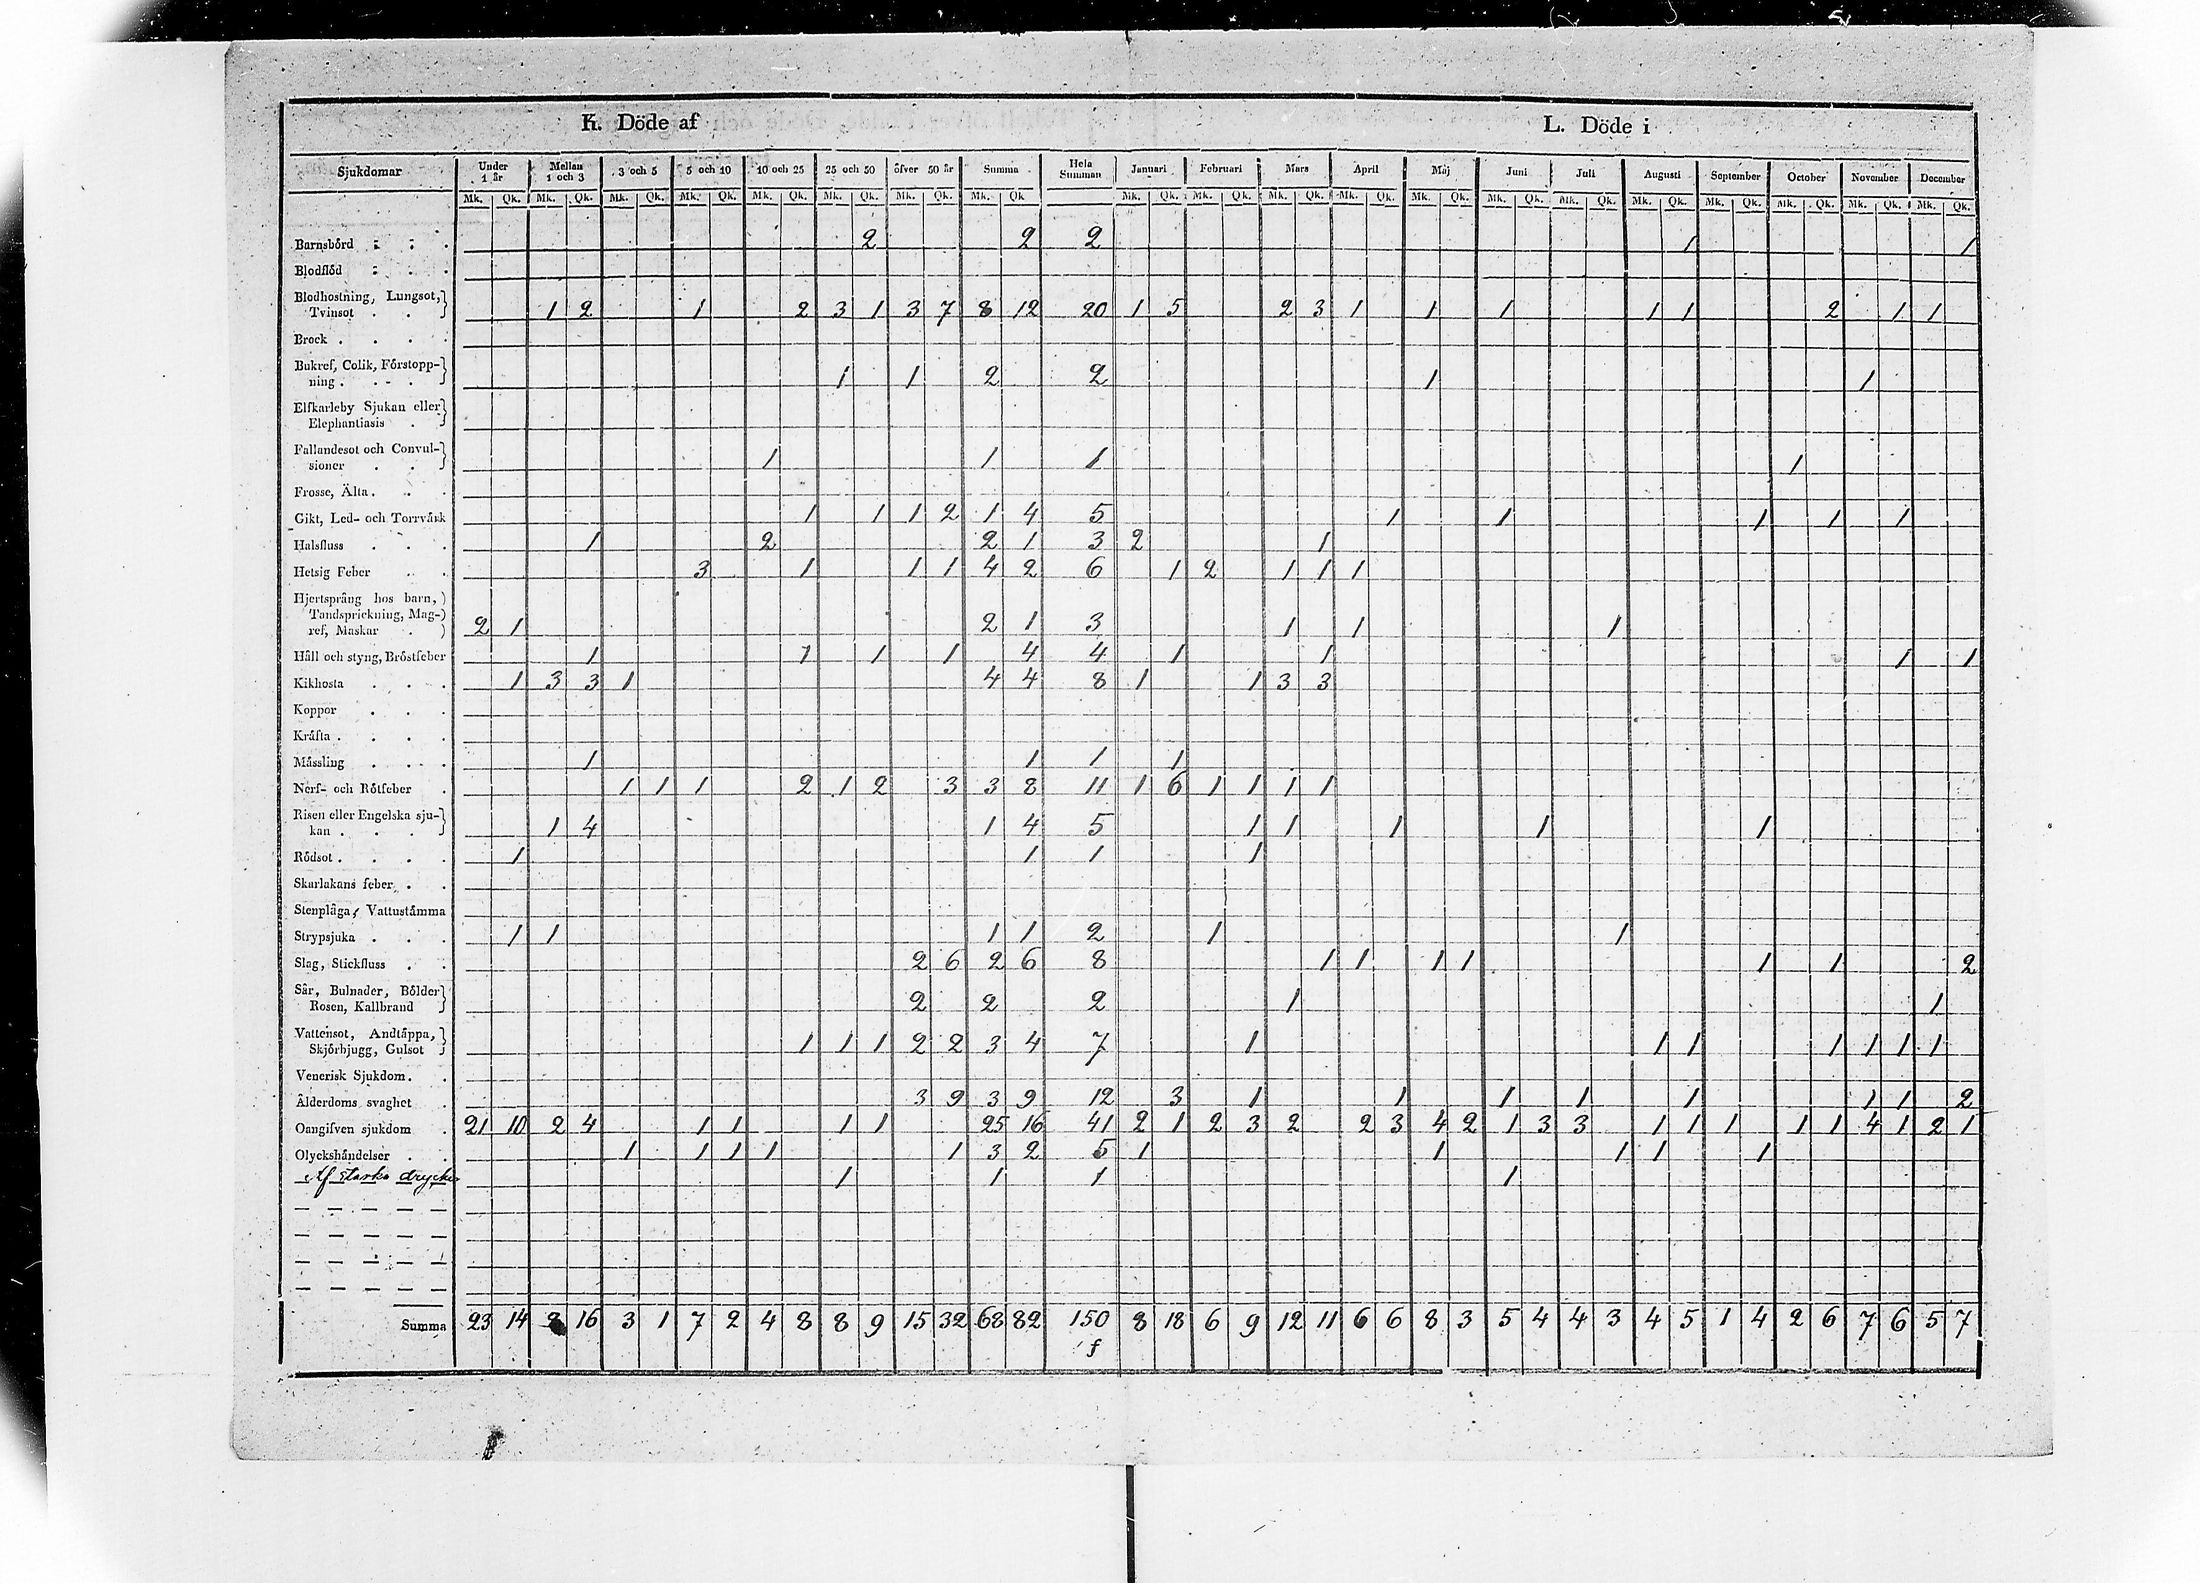 K. Döde af L. Döde i
Sjukdomar Under 1 år Mellan 1 och 3 3 och 5 5 och 10 10 och 25 25 och 50 öfver 50 år Summa Hela Summan Januari Februari Mars April Maj Juni Juli Augusti September October November December
Mk. Qk. Mk. Qk. Mk. Qk. Mk. Qk. Mk. Qk. Mk. Qk. Mk. Qk. Mk. Qk Mk. Qk. Mk. Qk. Mk. Qk. Mk. Qk. Mk. Qk. Mk. Qk. Mk. Qk. Mk. Qk. Mk. Qk. Mk. Qk. Mk. Qk. Mk. Qk.
Barnsbörd 2 2 2 1 1
Blodflöd
Blodhostning, Lungsot,
Tvinsot 1 2 1 2 3 1 3 7 8 12 20 1 5 2 3 1 1 1 1 1 2 1 1
Brock
Bukref, Colik, Förstopp-
ning 1 1 2 2 1 1
Elfkarleby Sjukan eller
Elephantiasis
Fallandesot och Convul-
sioner 1 1 1 1
Frosse, Älta
Gikt, Led- och Torrvärk 1 1 1 2 1 4 5 1 1 1 1 1
Halsfluss 1 2 2 1 3 2 1
Hetsig Feber 3 1 1 1 4 2 6 1 2 1 1 1
Hjertsprång hos barn,
Tandsprickning, Mag-
ref, Maskar 2 1 2 1 3 1 1 1
Håll och styng, Bröstfeber 1 1 1 1 4 4 1 1 1 1
Kikhosta 1 3 3 1 4 4 8 1 1 3 3
Koppor
Kräfta
Mässling 1 1 1 1
Nerf- och Rötfeber 1 1 1 2 1 2 3 3 8 11 1 6 1 1 1 1
Risen eller Engelska sju-
kan 1 4 1 4 5 1 1 1 1 1
Rödsot 1 1 1 1
Skarlakans feber
Stenplåga, Vattustämma
Strypsjuka 1 1 1 1 2 1 1
Slag, Stickfluss 2 6 2 6 8 1 1 1 1 1 1 2
Sår, Bulnader, Bölder
Rosen, Kallbrand 2 2 2 1 1
Vattensot, Andtäppa,
Skjörbjugg, Gulsot 1 1 1 2 2 3 4 7 1 1 1 1 1 1 1
Venerisk Sjukdom
Ålderdoms svaghet 3 9 3 9 12 3 1 1 1 1 1 1 1 2
Oangifven sjukdom 21 10 2 4 1 1 1 1 25 16 41 2 1 2 3 2 2 3 4 2 1 3 3 1 1 1 1 1 4 1 2 1
Olyckshändelser 1 1 1 1 1 3 2 5 1 1 1 1 1
Af starka drycker 1 1 1 1
Summa 23 14 8 16 3 1 7 2 4 8 8 9 15 32 68 82 150 8 18 6 9 12 11 6 6 8 3 5 4 4 3 4 5 1 4 2 6 7 6 5 7